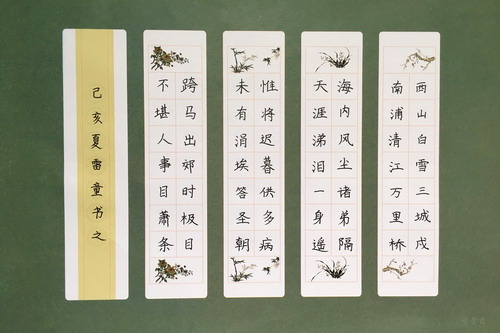 西山白雪三城戍
南浦清江万里桥
海内风尘诸弟隔
天涯涕泪一身遥
惟将迟暮供多病
未有涓埃答圣朝
跨马出郊时极目
不堪人事日萧条
己亥夏雷童书之